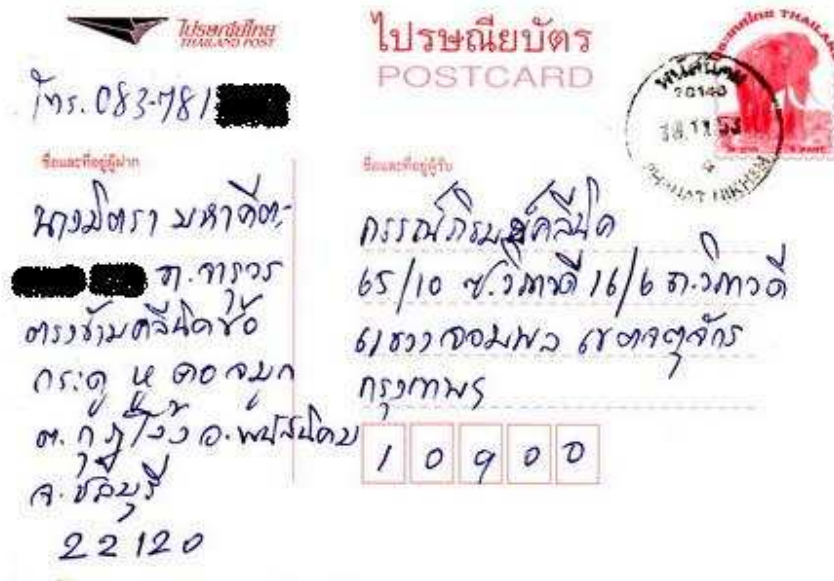 ไปรษณีย์ไทย
THAILAND POST
ไปรษณียบัตร
POSTCARD
ประเทศไทย THAILAND
พนัสนิคม
20140
PHANAT NIKHOM
โทร. 083-781
ชื่อและที่อยู่ผู้ฝาก
นางมิตรา มหาคีตะ
ถ.จารุวร
ตรงข้ามคลีนิคข้อ
กระดู หู คอ จมูก
ต. กุฎโง้ง อ. พนัสนิคม
จ. ชลบุรี
22120
ชื่อและที่อยู่ผู้รับ
กรรณภิรมย์คลีนิค
65/10 ซ.วิภาวดี 16/6 ถ.วิภาวดี
แขวงจอมพล เขตจตุจักร
กรุงเทพฯ
10900